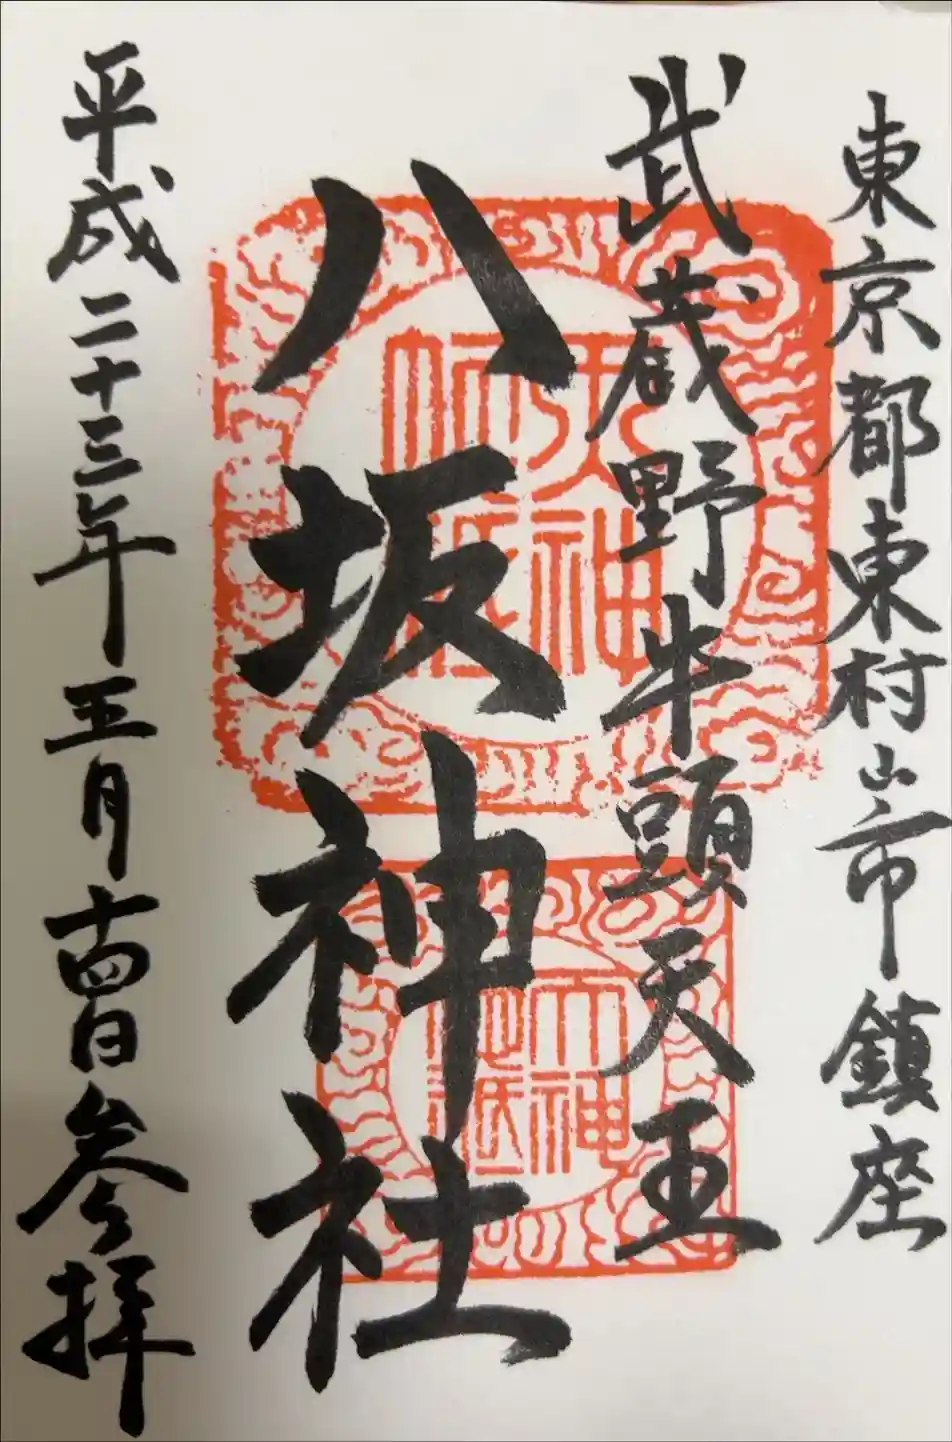 東京都東村山市鎮座
武蔵野牛頭天王
八坂神社
平成二十三年五月十四日参拝
天神
地祇
天神
地祇